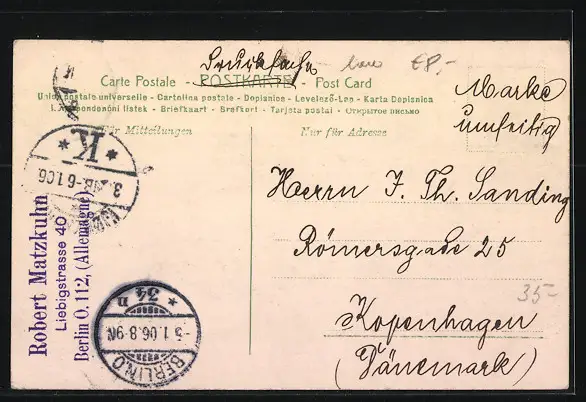 Drucksache
E8,-
Carte Postale - POSTKARTE - Post Card
Union postale universelle - Cartolina postale - Dopisnice - Levelező-Lap - Karta Dopisnica
Korespondenční listek - Briefkaart - Brefkort - Tarjeta postal - Открытое письмо
Für Mitteilungen
Nur für Adresse
Marke
umseitig
Herrn J. Th. Sanding
Römersgade 25
Kopenhagen
(Dänemark)
35-
K
6.1.06
Robert Matzkuhn
Liebigstrasse 40
Berlin O. 112, (Allemagne)
* 34 n *
-5.1.06.8-9N
BERLIN.O